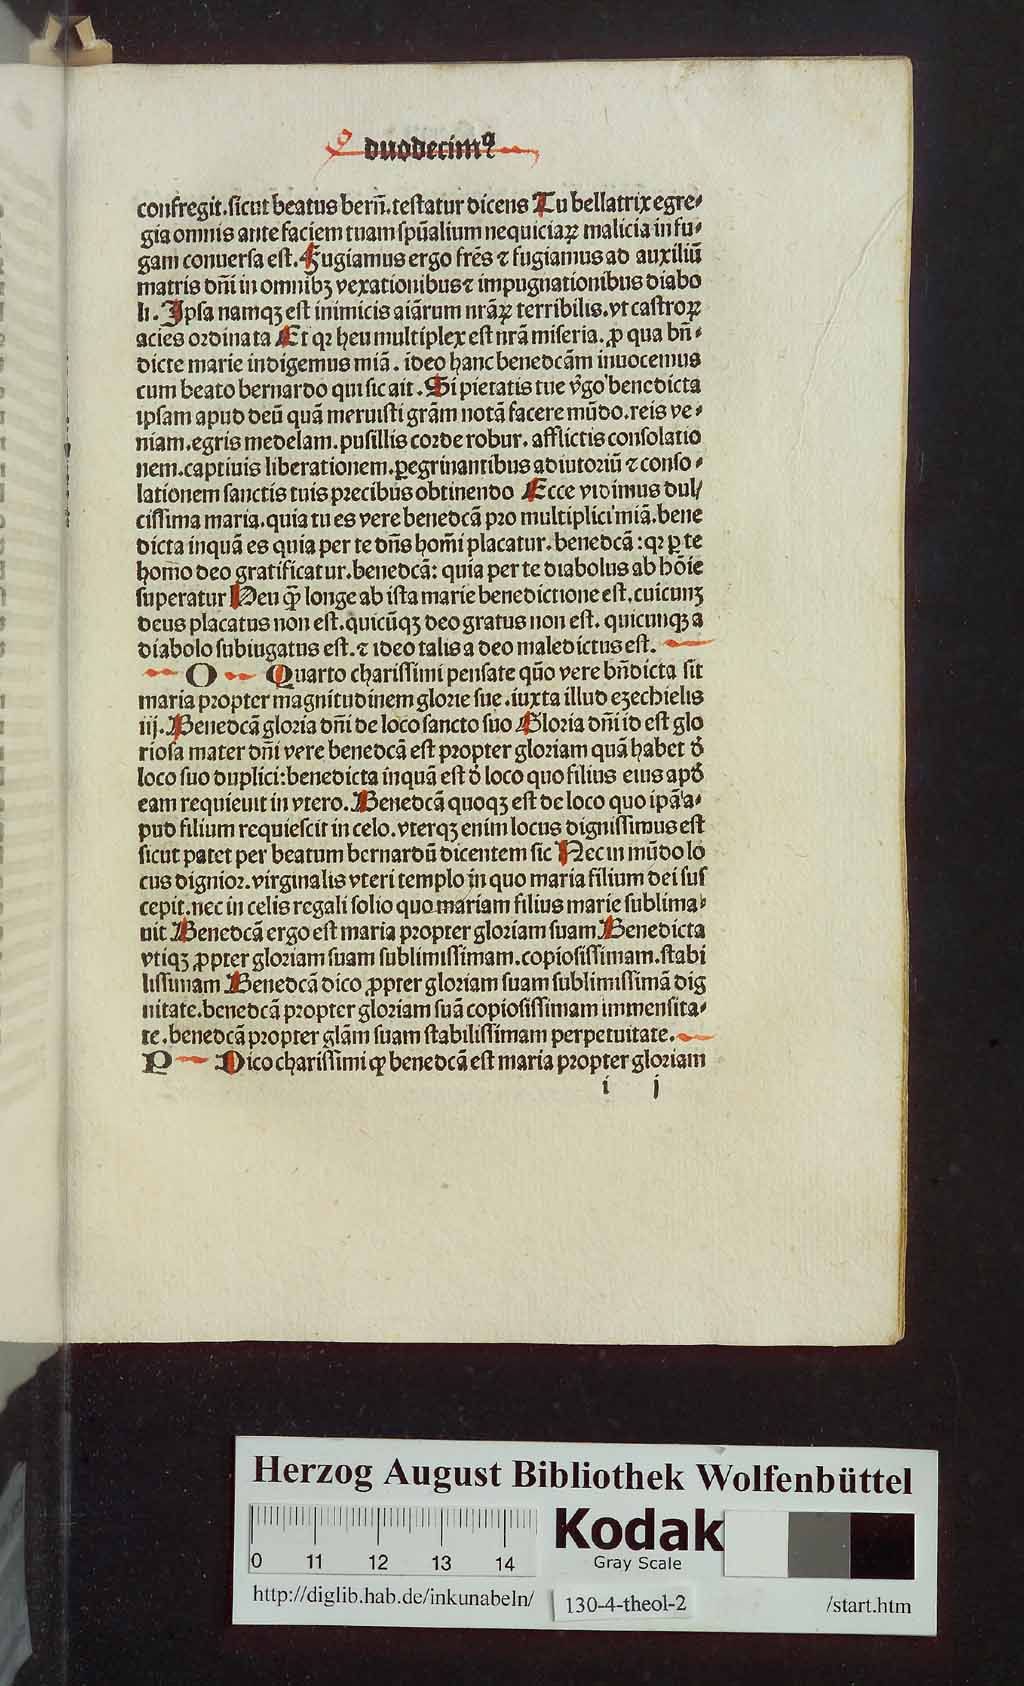 duodecimꝰ
confregit.sicut beatus berñ.testatur dicens Tu bellatrix egre⸗
gia omnis ante faciem tuam spũalium nequiciaꝝ malicia in fu⸗
gam conuersa est.Fugiamus ergo frẽs ⁊ fugiamus ad auxiliũ
matris dñi in omnibꝫ vexationibus⁊ impugnationibus diabo
li.Ipsa namqꝫ est inimicis aiãrum nrãꝝ terribilis.vt castroꝝ
acies ordinata Et qꝛ heu multiplex est nrã miseria.ꝓ qua bñ⸗
dicte marie indigemus miã.ideo hanc benedcãm inuocemus
cum beato bernardo qui sic ait.Si pietatis tue v̓go benedicta
ipsam apud deũ quã meruisti grãm notã facere mũdo.reis ve⸗
niam.egris medelam.pusillis corde robur.afflictis consolatio
nem.captiuis liberationem.ꝑegrinantibus adiutoriũ ⁊ conso⸗
lationem sanctis tuis precibus obtinendo Ecce vidimus dul/
cissima maria.quia tu es vere benedcã pro multiplici miã.bene
dicta inquã es quia per te dñs homĩ placatur.benedcã:qꝛ ꝑ te
homo deo gratificatur.benedcã: quia per te diabolus ab hoĩe
superatur Heu ꝙ̃ longe ab ista marie benedictione est.cuicunꝫ
deus placatus non est.quicũqꝫ deo gratus non est.quicunqꝫ a
diabolo subiugatus est.⁊ ideo talis a deo maledictus est.
O Quarto charissimi pensate quõ vere bñdicta sit
maria propter magnitudinem glorie sue.iuxta illud ezechielis
iij.Benedcã gloria dñi de loco sancto suo Gloria dñi id est glo
riosa mater dñi vere benedcã est propter gloriam quã habet d̓
loco suo duplici:benedicta inquã est d̓ loco quo filius eius apd̓
eam requieuit in vtero.Benedcã quoqꝫ est de loco quo ipã a⸗
pud filium requiescit in celo.vterqꝫ enim locus dignissimus est
sicut patet per beatum bernardũ dicentem sic Nec in mũdo lo
cus dignior.virginalis vteri templo in quo maria filium dei sus
cepit.nec in celis regali solio quo mariam filius marie sublima⸗
uit Benedcã ergo est maria propter gloriam suam Benedicta
vtiqꝫ ꝓpter gloriam suam sublimissimam.copiosissimam.stabi
lissimam Benedcã dico ꝓpter gloriam suam sublimissimã dig
nitate.benedcã propter gloriam suã copiosissimam immensita⸗
te.benedcã propter glãm suam stabilissimam perpetuitate.
P Dico charissimi ꝙ benedcã est maria propter gloriam
i j
Herzog August Bibliothek Wolfenbüttel
0 11 12 13 14
Kodak
Gray Scale
http://diglib.hab.de/inkunabeln/ 130-4-theol-2 /start.htm